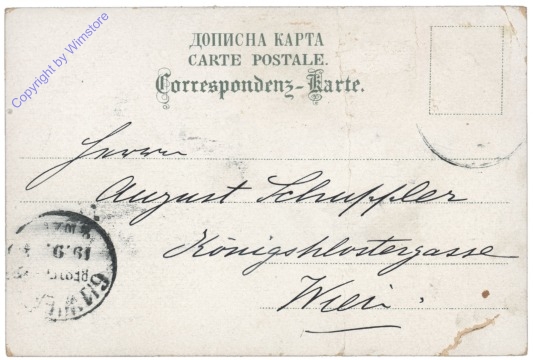 Copyright by Wimstore
ДОПИСНА КАРТА
CARTE POSTALE.
Correspondenz-Karte.
Herrn
August Schuppler
Königsklostergasse
Wien.
19.9.